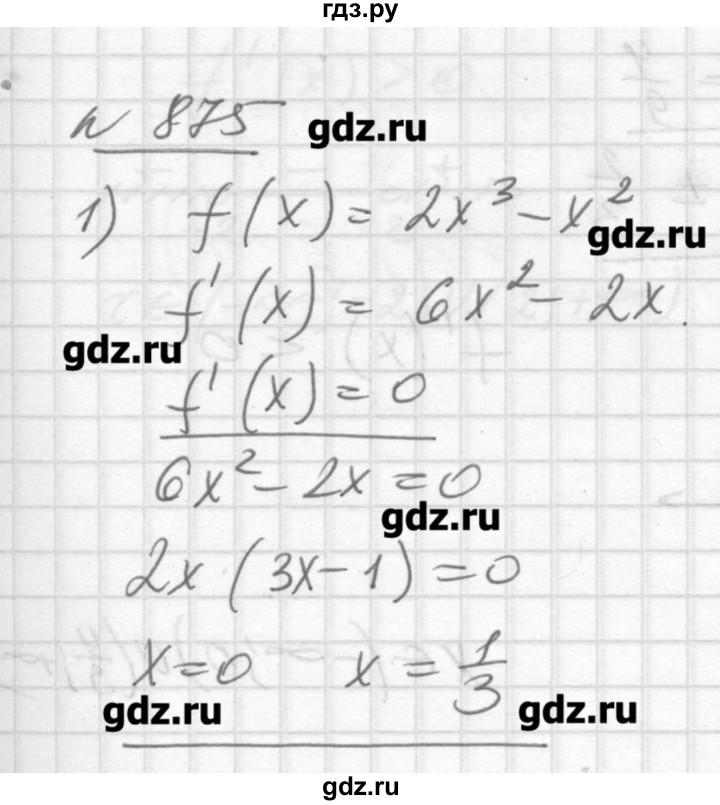 гдз.ру
№ 875
gdz.ru
1) f(x) = 2x³ - x²
gdz.ru
f'(x) = 6x² - 2x.
gdz.ru
f'(x) = 0
6x² - 2x = 0
gdz.ru
2x (3x - 1) = 0
x = 0 x = 1/3
gdz.ru gdz.ru
gdz.ru